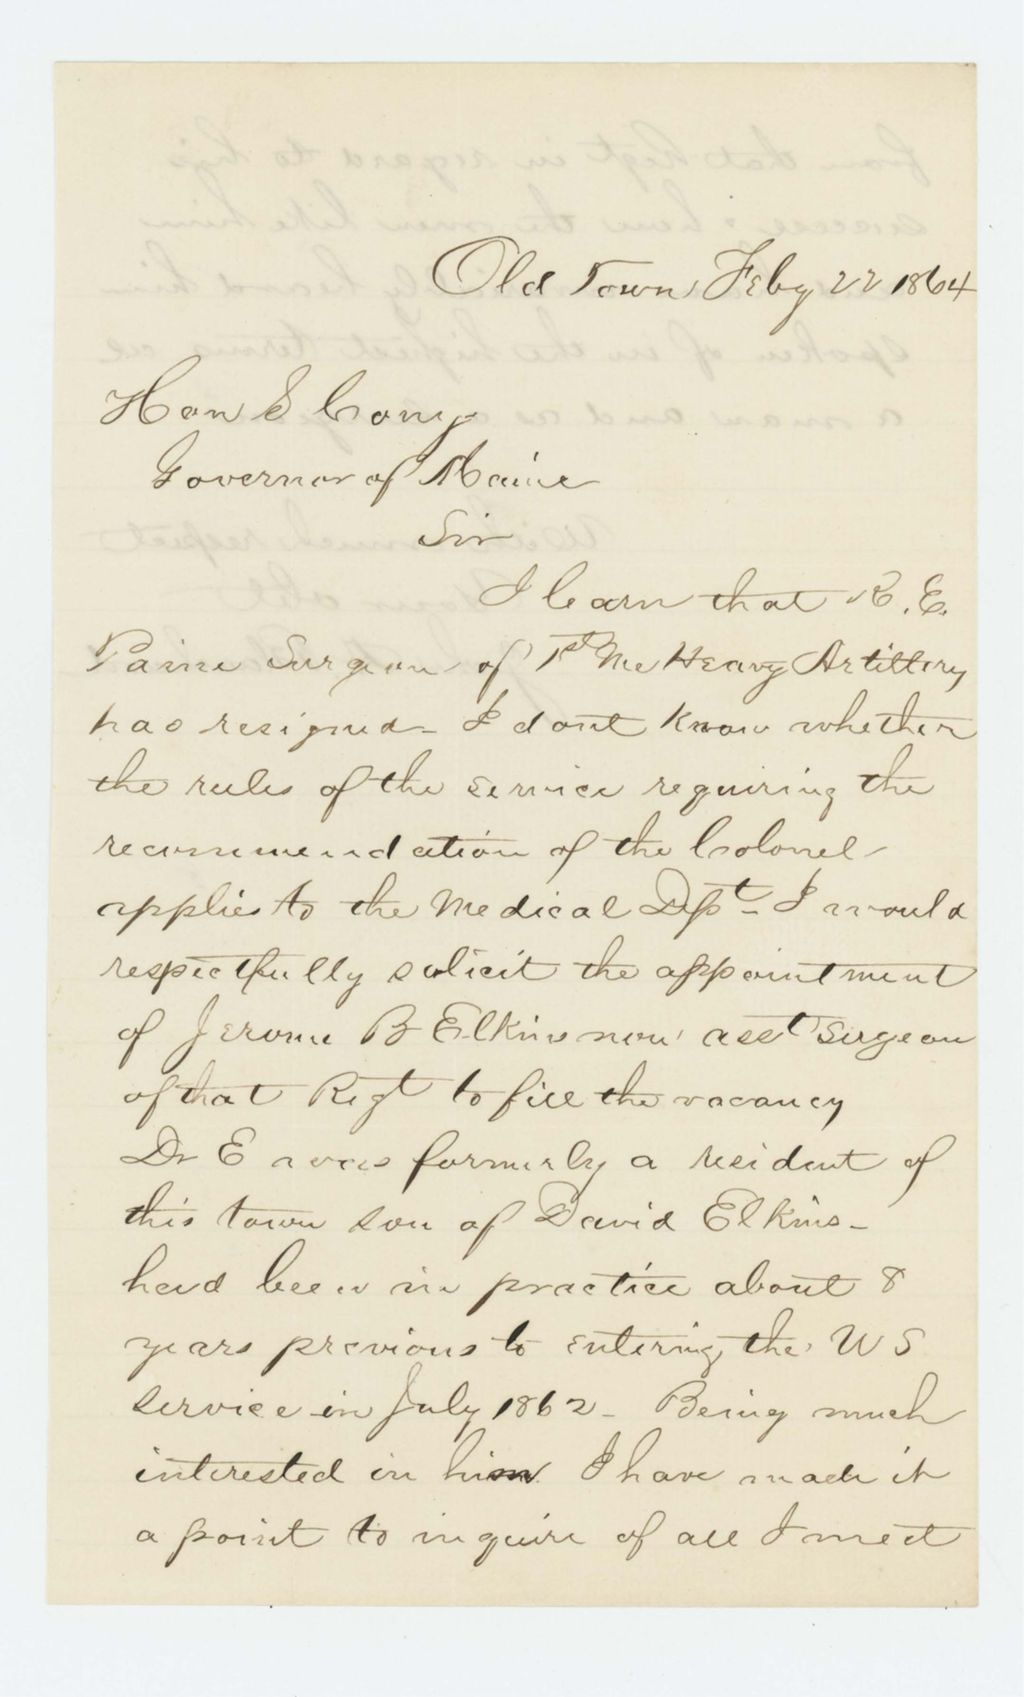 Old Town Feby 22 1864
Hon S Cony
Governor of Maine
Sir
I learn that R. E.
Paine Surgeon of 1st Me Heavy Artillery
has resigned - I dont know whether
the rules of the service requiring the
recommendation of the Colonel
applies to the Medical Dpt - I would
respectfully solicit the appointment
of Jerome B Elkins now asst Surgeon
of that Regt to fill the vacancy
Dr E was formerly a resident of
this town son of David Elkins -
had been in practice about 8
years previous to entering the U S
service in July 1862 - Being much
interested in him I have made it
a point to inquire of all I meet